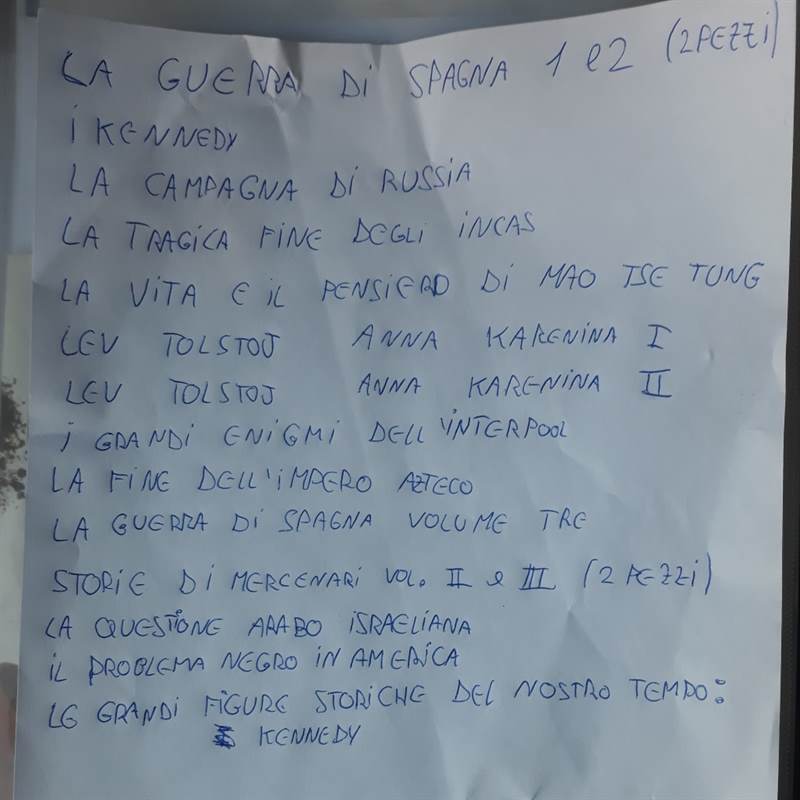 LA GUERRA Di SPAGNA 1 e 2 (2 PEZZi)
i KENNEDY
LA CAMPAGNA Di RUSSiA
LA TRAGiCA FiNE DEGLi iNCAS
LA ViTA E iL PENSiERO Di MAO TSE TUNG
LEV TOLSTOJ ANNA KARENiNA I
LEV TOLSTOJ ANNA KARENiNA II
i GRANDi ENiGMi DELL'iNTERPOOL
LA FiNE DELL'iMPERO AZTECO
LA GUERRA Di SPAGNA VOLUME TRE
STORiE Di MERCENARi VOL. II e III (2 PEZZi)
LA QUESTiONE ARABO iSRAELiANA
iL PROBLEMA NEGRO iN AMERiCA
LE GRANDi FiGURE STORiCHE DEL NOSTRO TEMPO:
KENNEDY